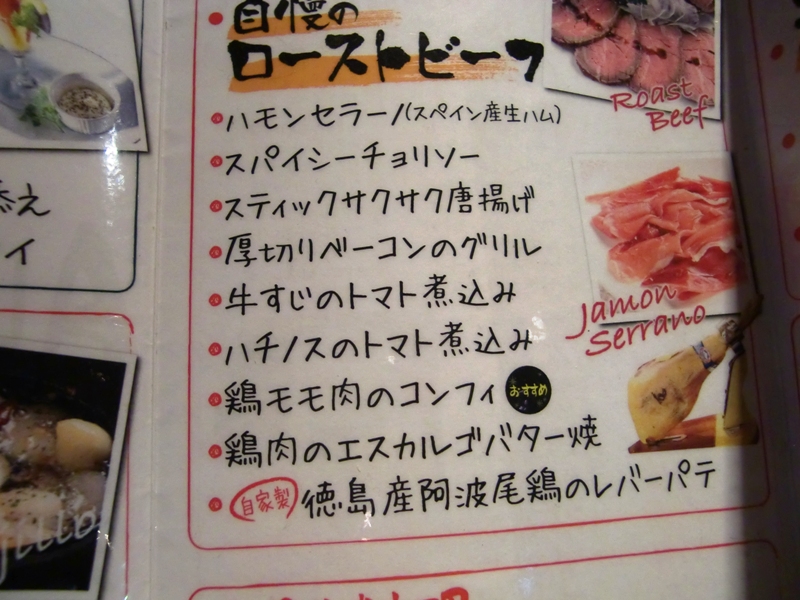 自慢の
ローストビーフ
Roast
Beef
ハモンセラーノ(スペイン産生ハム)
スパイシーチョリソー
スティックサクサク唐揚げ
厚切りベーコンのグリル
牛すじのトマト煮込み
Jamon
Serrano
ハチノスのトマト煮込み
鶏モモ肉のコンフィ おすすめ
鶏肉のエスカルゴバター焼
自家製 徳島産阿波尾鶏のレバーパテ
添え
イ
jillo